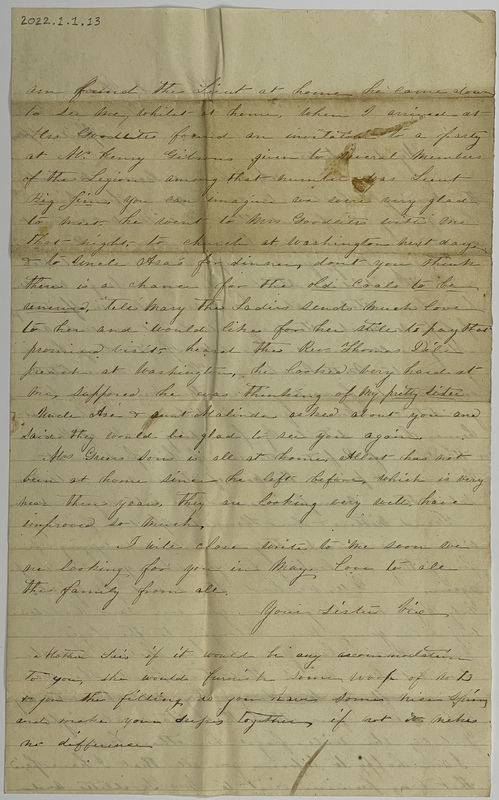 2022.1.1.13
am found the Lieut at home he came down
to see me, whilst at home, when I arrived at
Mrs Goodlits found an invitation to a party
at Mr. Henry Gibsons given to several Members
of the Legion among that number was Lieut
Big Jim, you can imagine we were very glad
to meet. he went to Mrs Goodlits with me
that night, to church at Washington next day
& to Uncle Asa's for dinner, don't you think
there is a chance for the old coals to be
renewed, tell Mary the Ladies send much love
to her and would like for her still to pay that
promised visit. heard the Rev. Thomas
preach at Washington, he looked very hard at
me, supposed he was thinking of my pretty sister
Uncle Asa & aunt Malinda asked about you and
said they would be glad to see you again
Mr Greers sons is all at home, Albert has not
been at home since he left before, which is very
near three years, they are looking very well, have
improved so much,
I will close write to me soon we
are looking for you in May, Love to all
the family from all
Your sister Vic
Mother sais if it would be any accommodation
to you, she would furnish some of
& you the filling, as you have some nice
and make your together, if not it makes
no difference